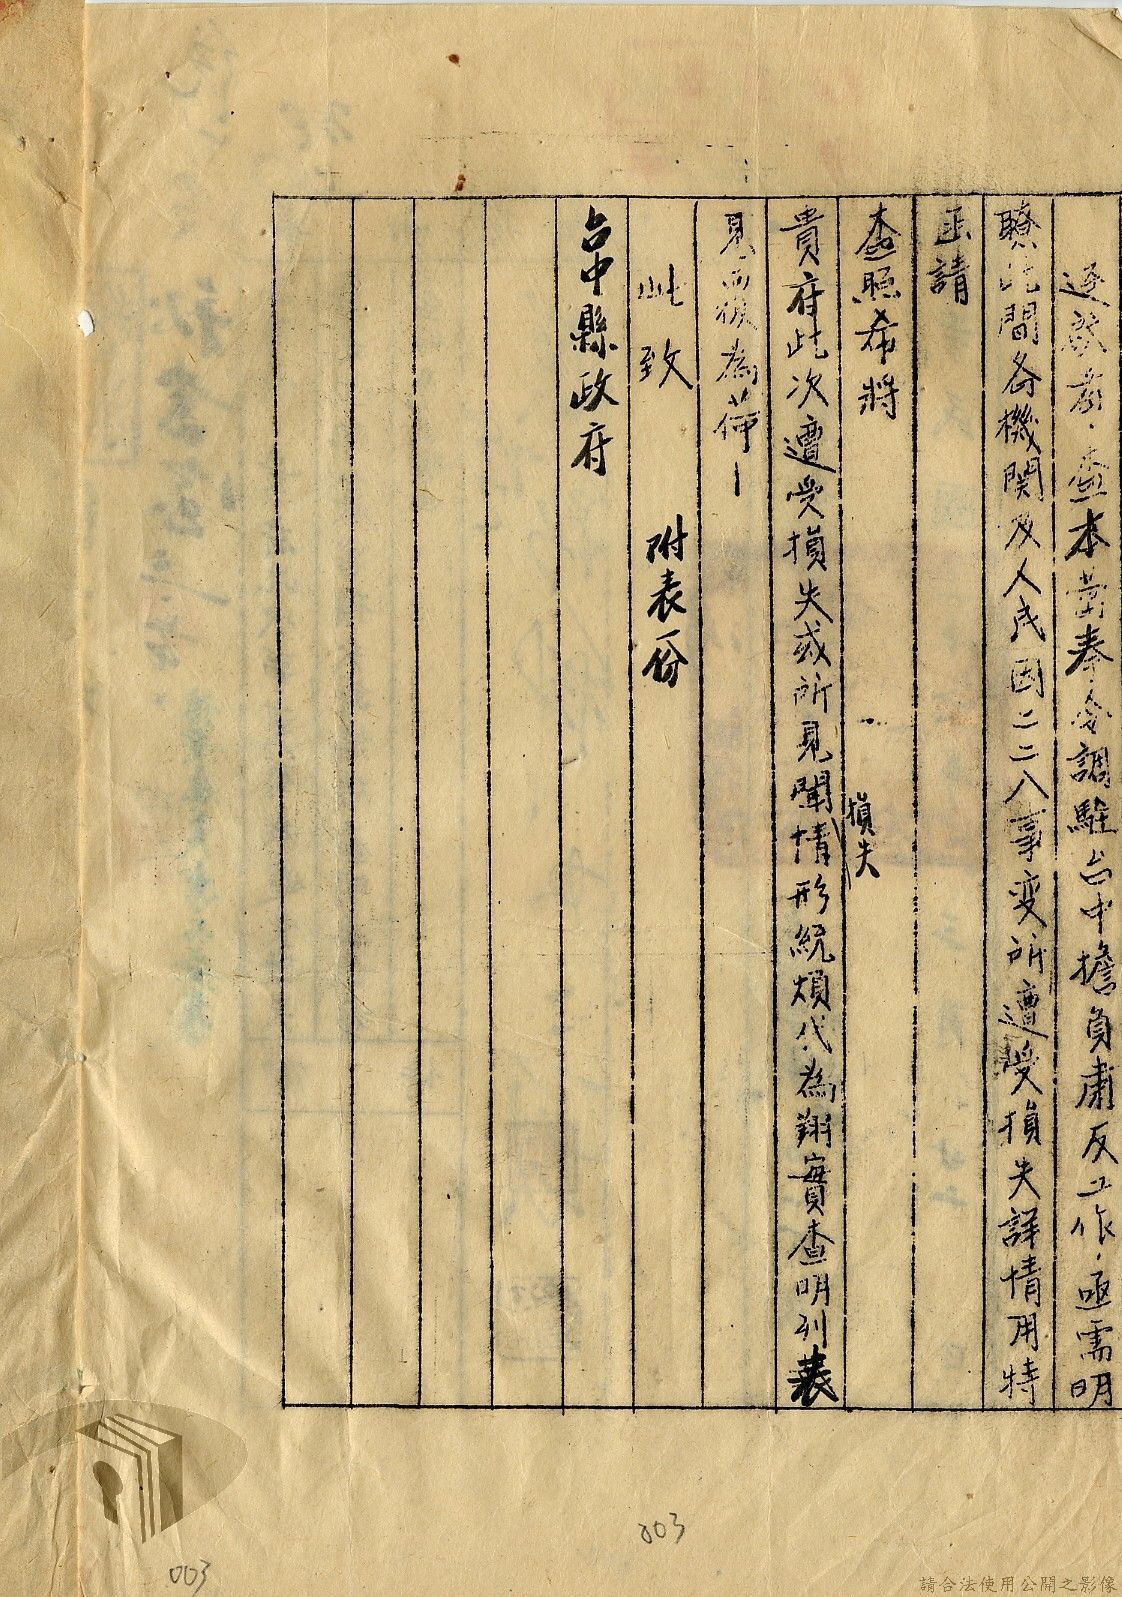 逕啟者·查本當奉令調駐台中擔負肅反工作·亟需明
瞭此間各機關及人民因二二八事变所遭受損失詳情用特
函請
查照希將
損失
貴府此次遭受損失或所見聞情形統煩代為翔實查明列表
見復為荷
此致 附表份
台中縣政府
003
003
請合法使用公開之影像